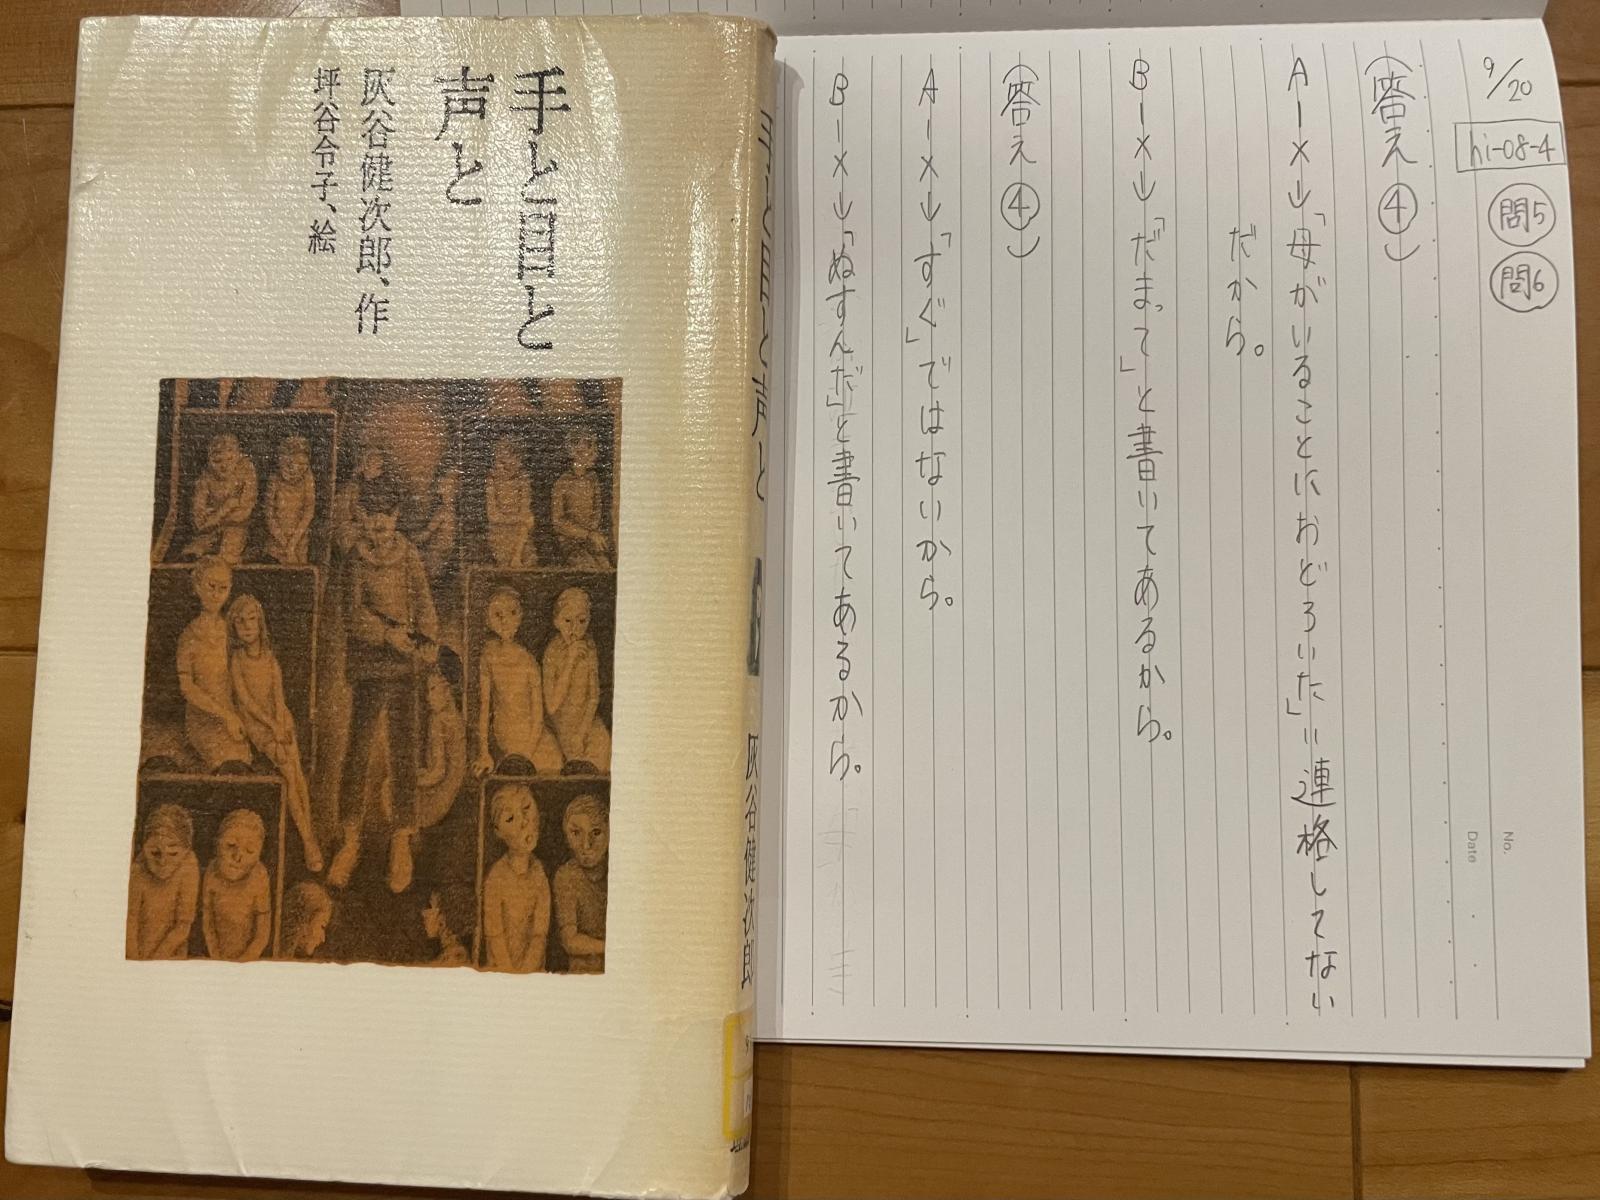 手と目と
声と
灰谷健次郎、作
坪谷令子、絵
手と目と声と
灰谷健次郎
9/20
hi-08-4
問5
問6
(答え④)
A-×→「母がいることにおどろいた」は連格してない
だから。
B-×→「だまって」と書いてあるから。
(答え④)
A-×→「すぐ」ではないから。
B-×→「ぬすんだ」と書いてあるから。
No.
Date